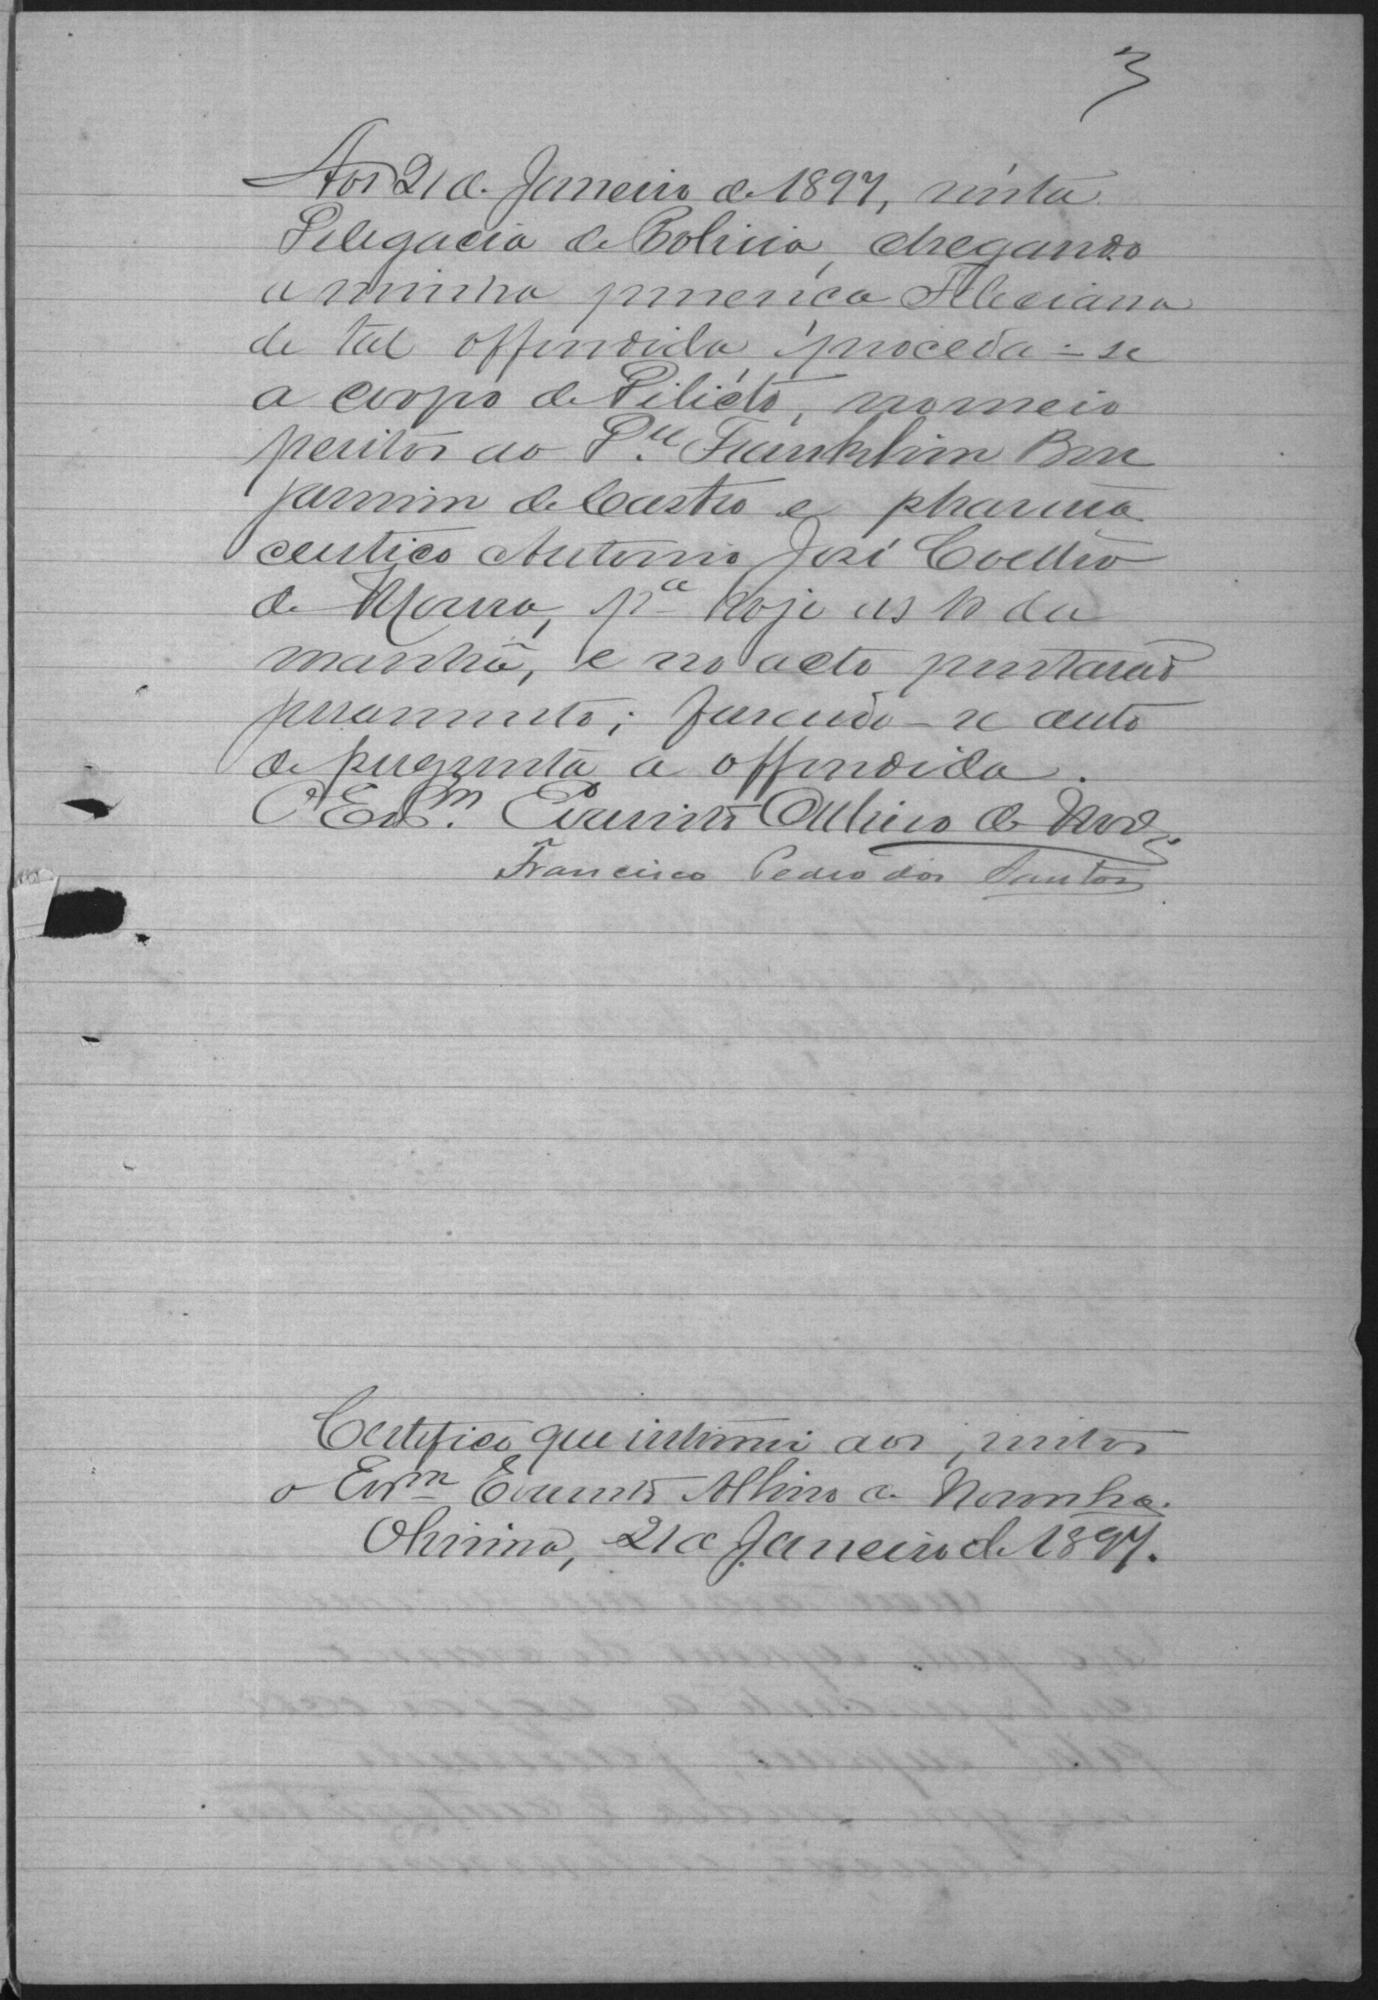 3
Aos 21 de Janeiro de 1897, nésta
Delegacia de Policia, chegando
a minha presença Feliciana
de tal offendida, proceda-se
a corpo de Delicto, nomeio
peritos ao Franklim Ben
jamim de Castro e pharma
ceutico Antonio José Coelho
de Moura, pª hoje as da
manhã, e no acto prestarão
juramento; fasendo-se auto
de pregunta a offendida.
O Escm. Albino de
Francisco Pedro dos Santos
Certifico que intimei aos peritos
o Escm Albino de Noronha.
21 de Janeiro de 1897.